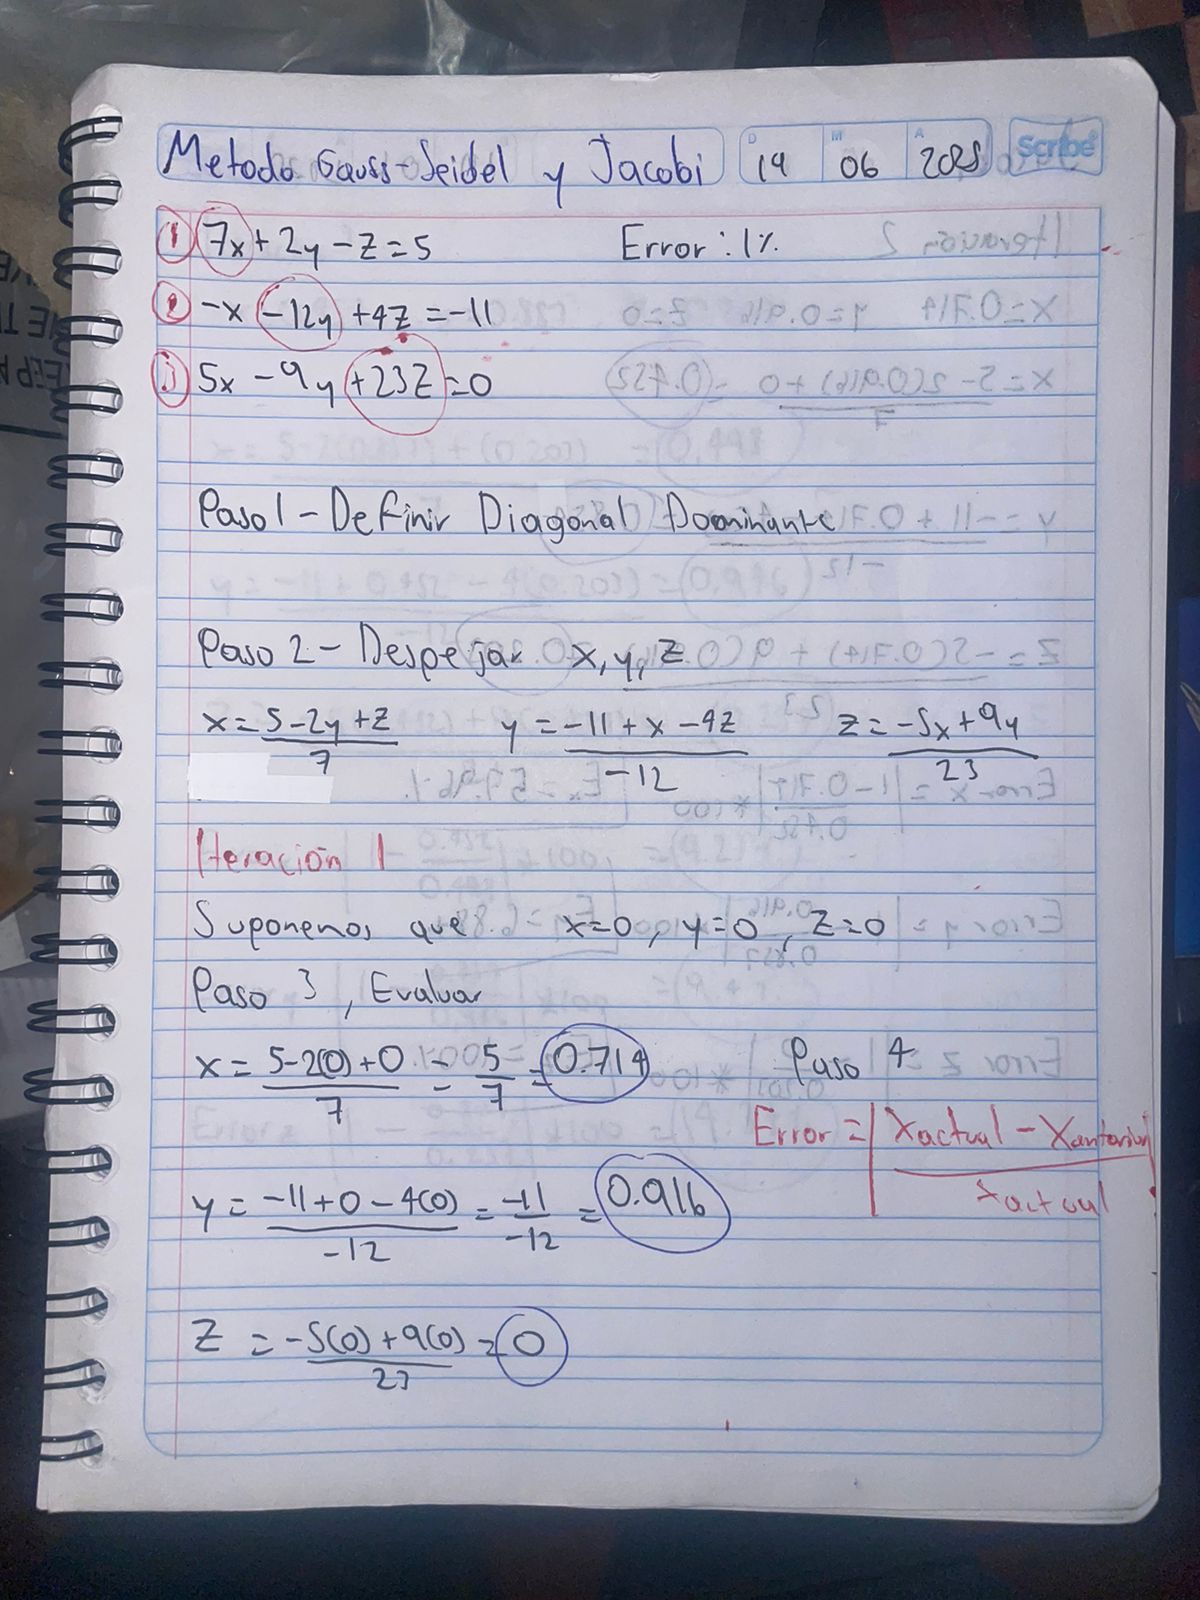 Metodo Gauss-Seidel y Jacobi D 19 M 06 A 2025 Scribe
1 7x + 2y - z = 5 Error: 1%
2 -x -12y + 4z = -11
3 5x - 9y + 23z = 0
Paso 1 - Definir Diagonal Dominante
Paso 2 - Despejar x, y, z
x = 5-2y+z / 7 y = -11 + x - 4z / -12 z = -5x + 9y / 23
Iteración 1
Suponemos que x=0, y=0, z=0
Paso 3, Evaluar
x = 5-2(0)+0 / 7 = 5 / 7 = 0.714 Paso 4
Error = | Xactual - Xanterior / xactual
y = -11+0-4(0) / -12 = -11 / -12 = 0.916
z = -5(0)+9(0) / 23 = 0